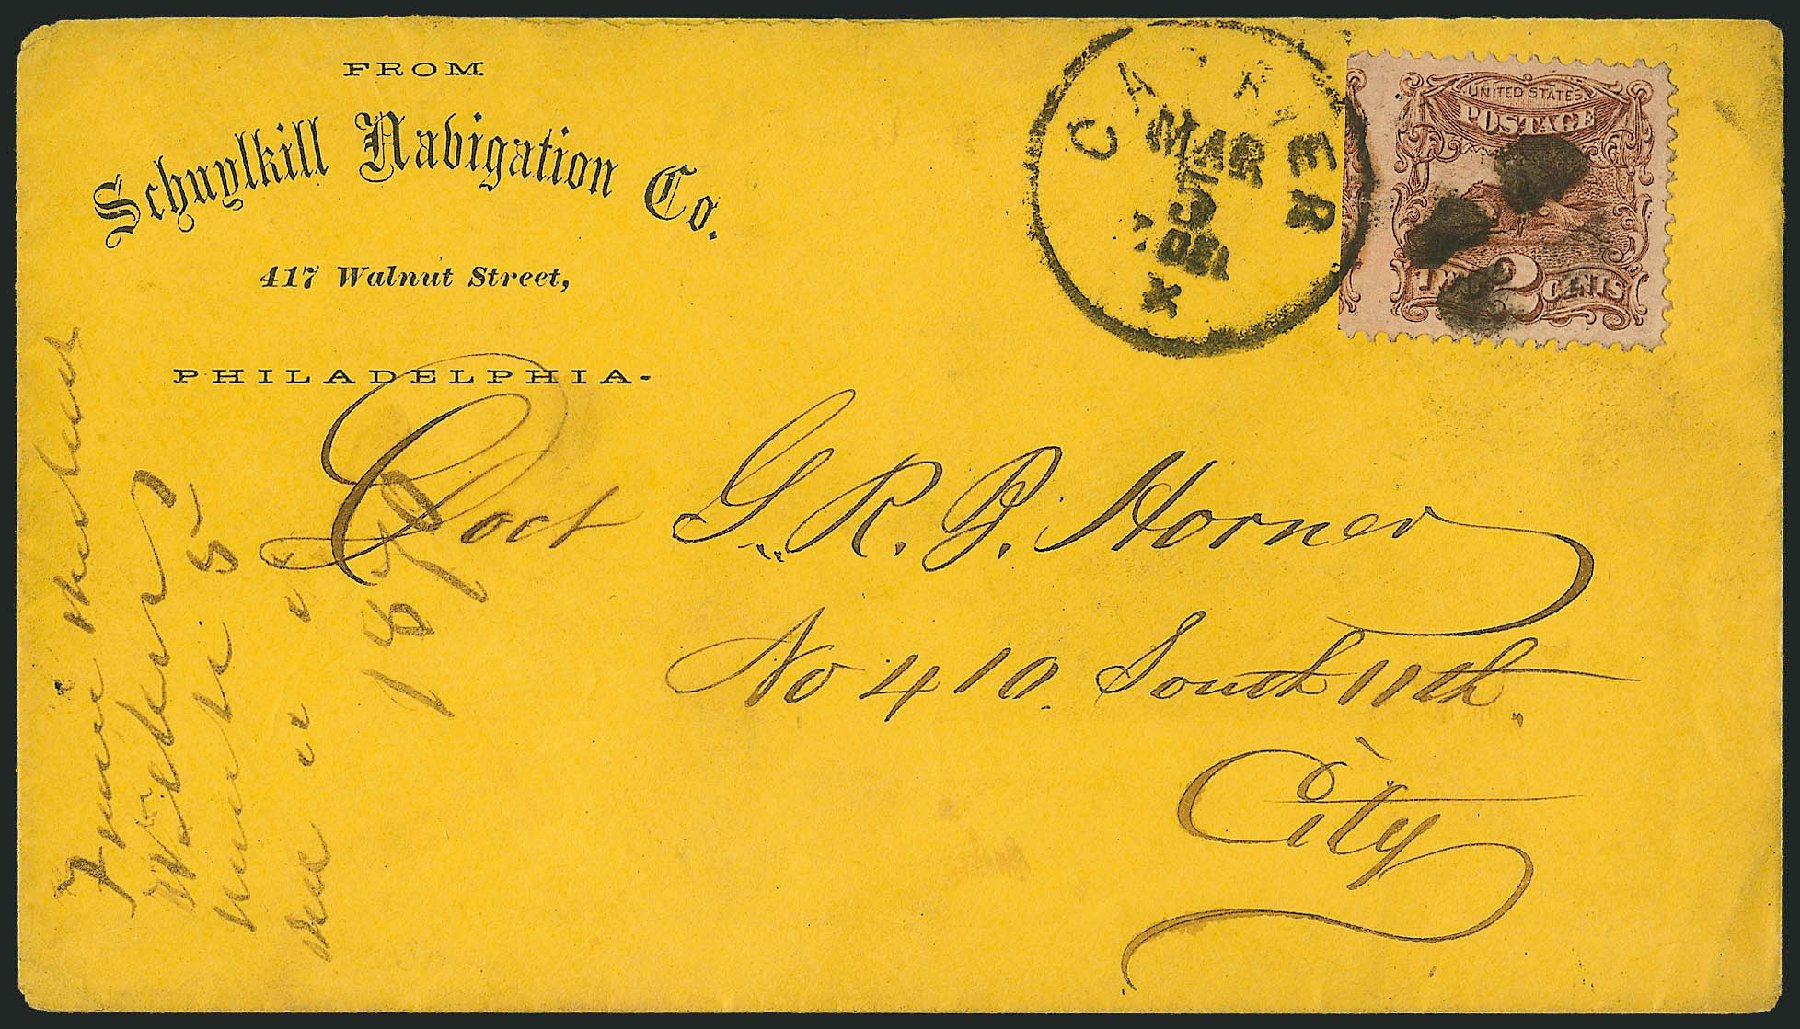 FROM
Schuylkill Navigation Co.
417 Walnut Street,
PHILADELPHIA.
CARRIER
MAR
5
X
UNITED STATES
POSTAGE
TWO 2 CENTS
Doct G. R. B. Horner
No 410. South 11th.
City
5
1870